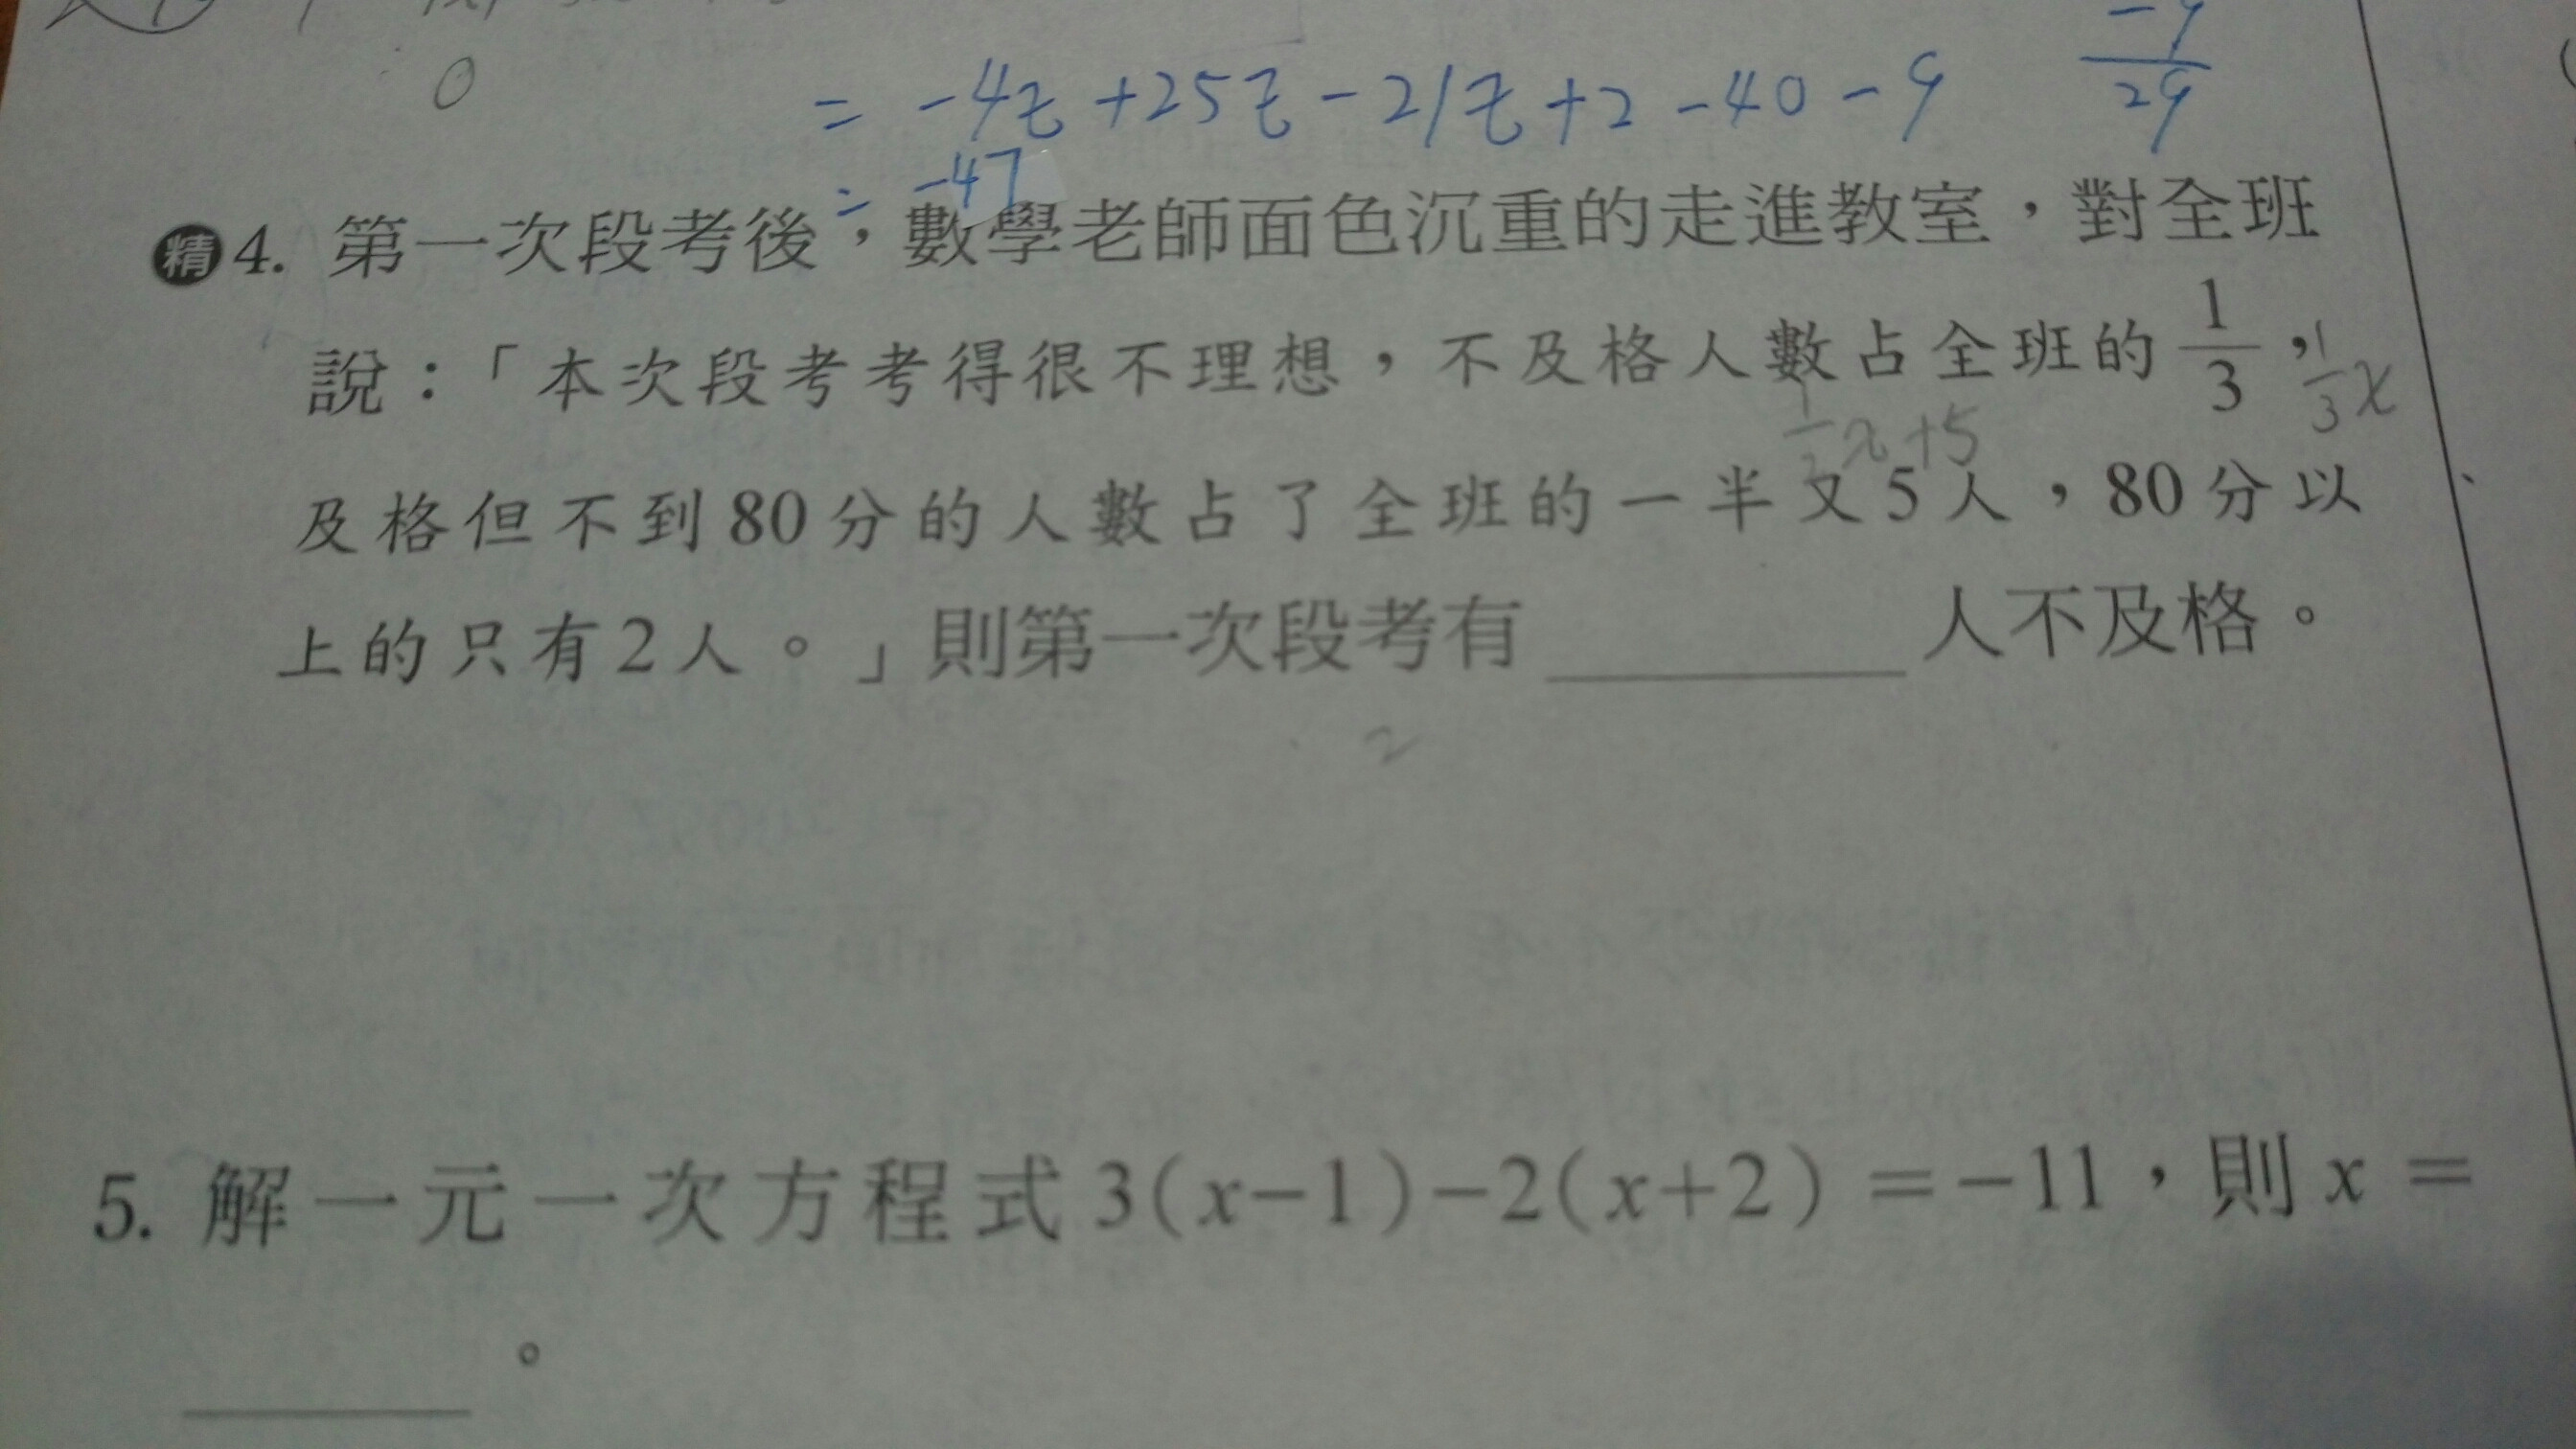 0
= -4z +25z -21z +2 -40 -9
-9
29
= -47
精 4. 第一次段考後，數學老師面色沉重的走進教室，對全班
說：「本次段考考得很不理想，不及格人數占全班的 1/3，
1/3 x
1/2 x +5
及格但不到 80 分的人數占了全班的一半又 5 人，80 分以
上的只有 2 人。」則第一次段考有________人不及格。
2
5. 解一元一次方程式 3(x-1)-2(x+2) =-11，則 x =
________。